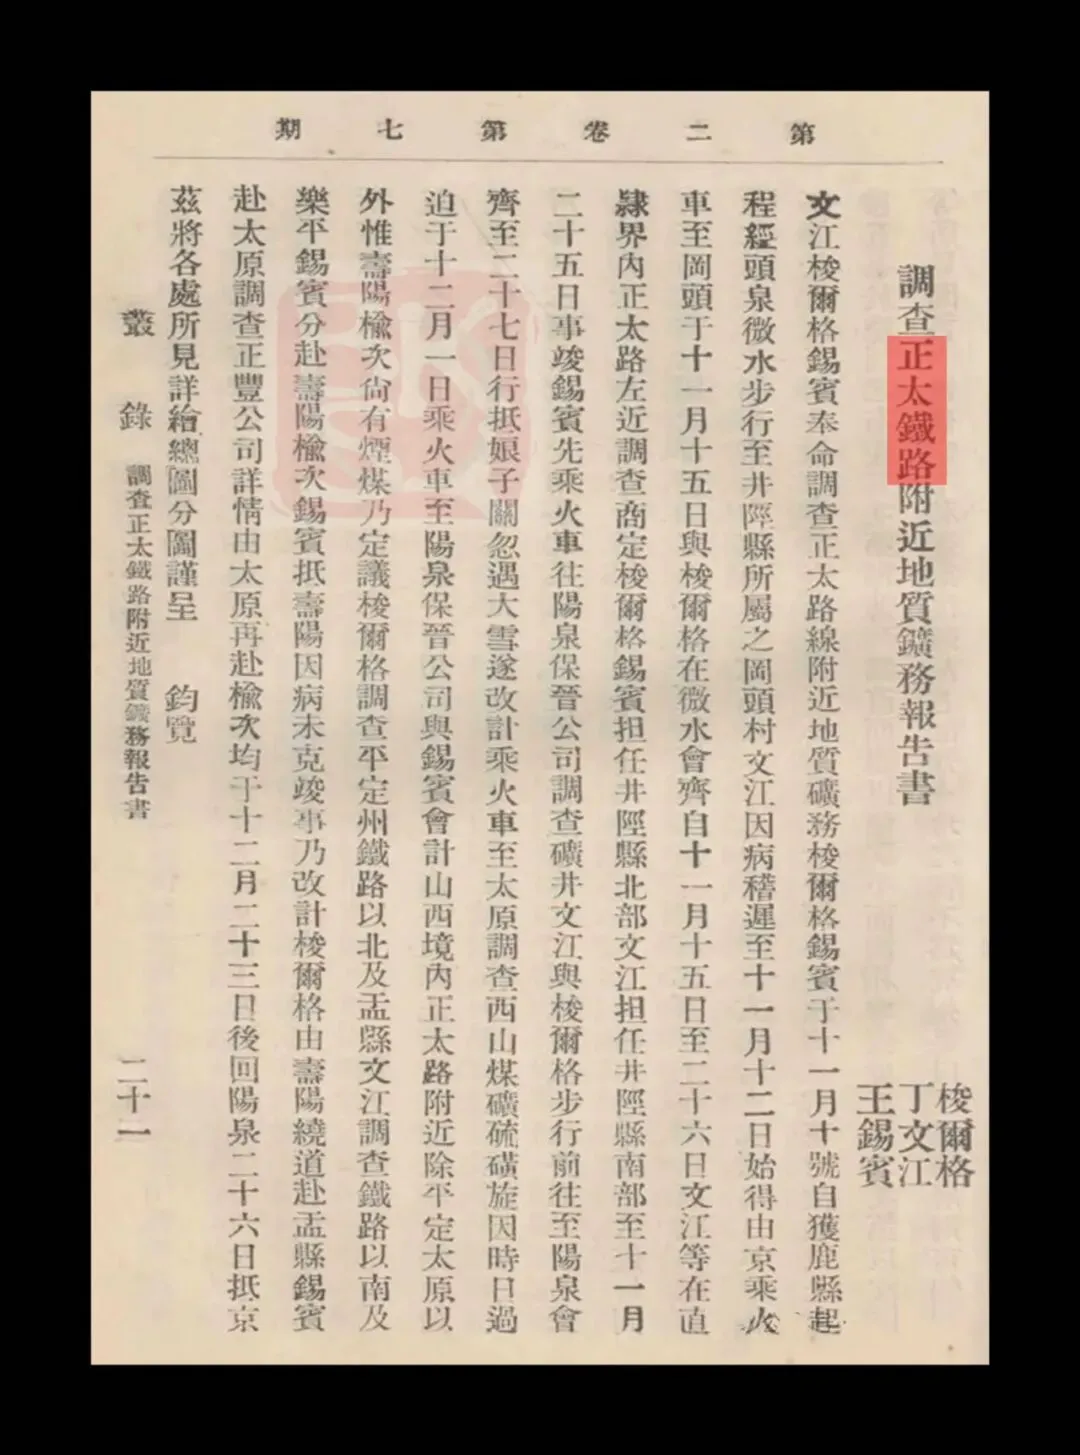 第二卷第七期
調查正太鐵路附近地質鑛務報告書
梭爾格
丁文江
王錫賓
文江梭爾格錫賓奉命調查正太路線附近地質礦務梭爾格錫賓于十一月十號自獲鹿縣起
程經頭泉微水步行至井陘縣所屬之岡頭村文江因病稽遲至十一月十二日始得由京乘火
車至岡頭于十一月十五日與梭爾格在微水會齊自十一月十五日至二十六日文江等在直
隸界內正太路左近調查商定梭爾格錫賓担任井陘縣北部文江担任井陘縣南部至十一月
二十五日事竣錫賓先乘火車往陽泉保晉公司調查礦井文江與梭爾格步行前往至陽泉會
齊至二十七日行抵娘子關忽遇大雪遂改計乘火車至太原調查西山煤礦硫磺旋因時日過
迫于十二月一日乘火車至陽泉保晉公司與錫賓會計山西境內正太路附近除平定太原以
外惟壽陽榆次尙有煙煤乃定議梭爾格調查平定州鐵路以北及盂縣文江調查鐵路以南及
樂平錫賓分赴壽陽榆次錫賓抵壽陽因病未克竣事乃改計梭爾格由壽陽繞道赴盂縣錫賓
赴太原調查正豐公司詳情由太原再赴榆次均于十二月二十三日後回陽泉二十六日抵京
茲將各處所見詳繪總圖分圖謹呈 鈞覽
叢錄 調查正太鐵路附近地質鑛務報告書 二十一